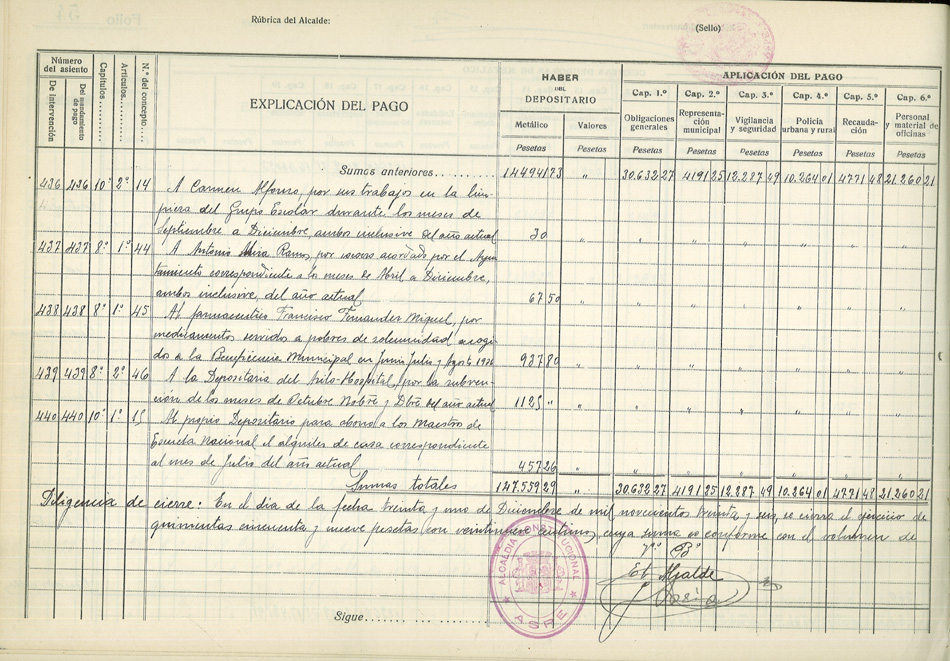 Rúbrica del Alcalde:
(Sello)
Número del asiento
De intervención
Del mandamiento de pago
Capítulos.
Artículos.
N.º del concepto.
EXPLICACIÓN DEL PAGO
HABER
DEL
DEPOSITARIO
Metálico
Valores
Pesetas
Pesetas
APLICACIÓN DEL PAGO
Cap. 1.º
Cap. 2.º
Cap. 3.º
Cap. 4.º
Cap. 5.º
Cap. 6.º
Obligaciones generales
Representación municipal
Vigilancia y seguridad
Policía urbana y rural
Recaudación
Personal y material de oficinas
Pesetas Pesetas Pesetas Pesetas Pesetas Pesetas
Sumas anteriores 30.632 27 4191 25 12.287 49 10.264 01 4771 48 21.260 21
436 436 10º 2º 14 A Carmen Alfonso, por sus trabajos en la lim-
pieza del Grupo Escolar durante los meses de
Septiembre a Diciembre, ambos inclusive del año actual 30 "
437 437 8º 1º 44 A Antonio Ramos, por acordado por el Ayun-
tamiento correspondiente a los meses de Abril a Diciembre,
ambos inclusive, del año actual 67 50
438 438 8º 1º 45 Al farmaceutico Francisco Fernandez Miguel, por
medicamentos servidos a pobres de solemnidad acogi-
dos a la Beneficencia Municipal en Junio Julio y Agosto 1936 937 80
439 439 8º 2º 46 A la Depositaria del Asilo-Hospital, por la subven-
cion de los meses de Octubre Nobre y Dbre del año actual 1125 "
440 440 10º 1º 15 Al propio Depositario para abono a los Maestros de
Escuela Nacional el alquiler de casa correspondiente
al mes de Julio del año actual 457 26
Sumas totales 147.559 29 " 30.632 27 4191 25 12.287 49 10.264 01 4771 48 21.260 21
Diligencia de cierre: En el dia de la fecha treinta y uno de Diciembre de mil novecientos treinta y seis, se cierra el ejercicio de
quinientas cincuenta y nueve pesetas con veintinueve centimos, cuya suma es conforme con el volumen de
Vº Bº
El Alcalde
ALCALDIA CONSTITUCIONAL
ASPE
Sigue